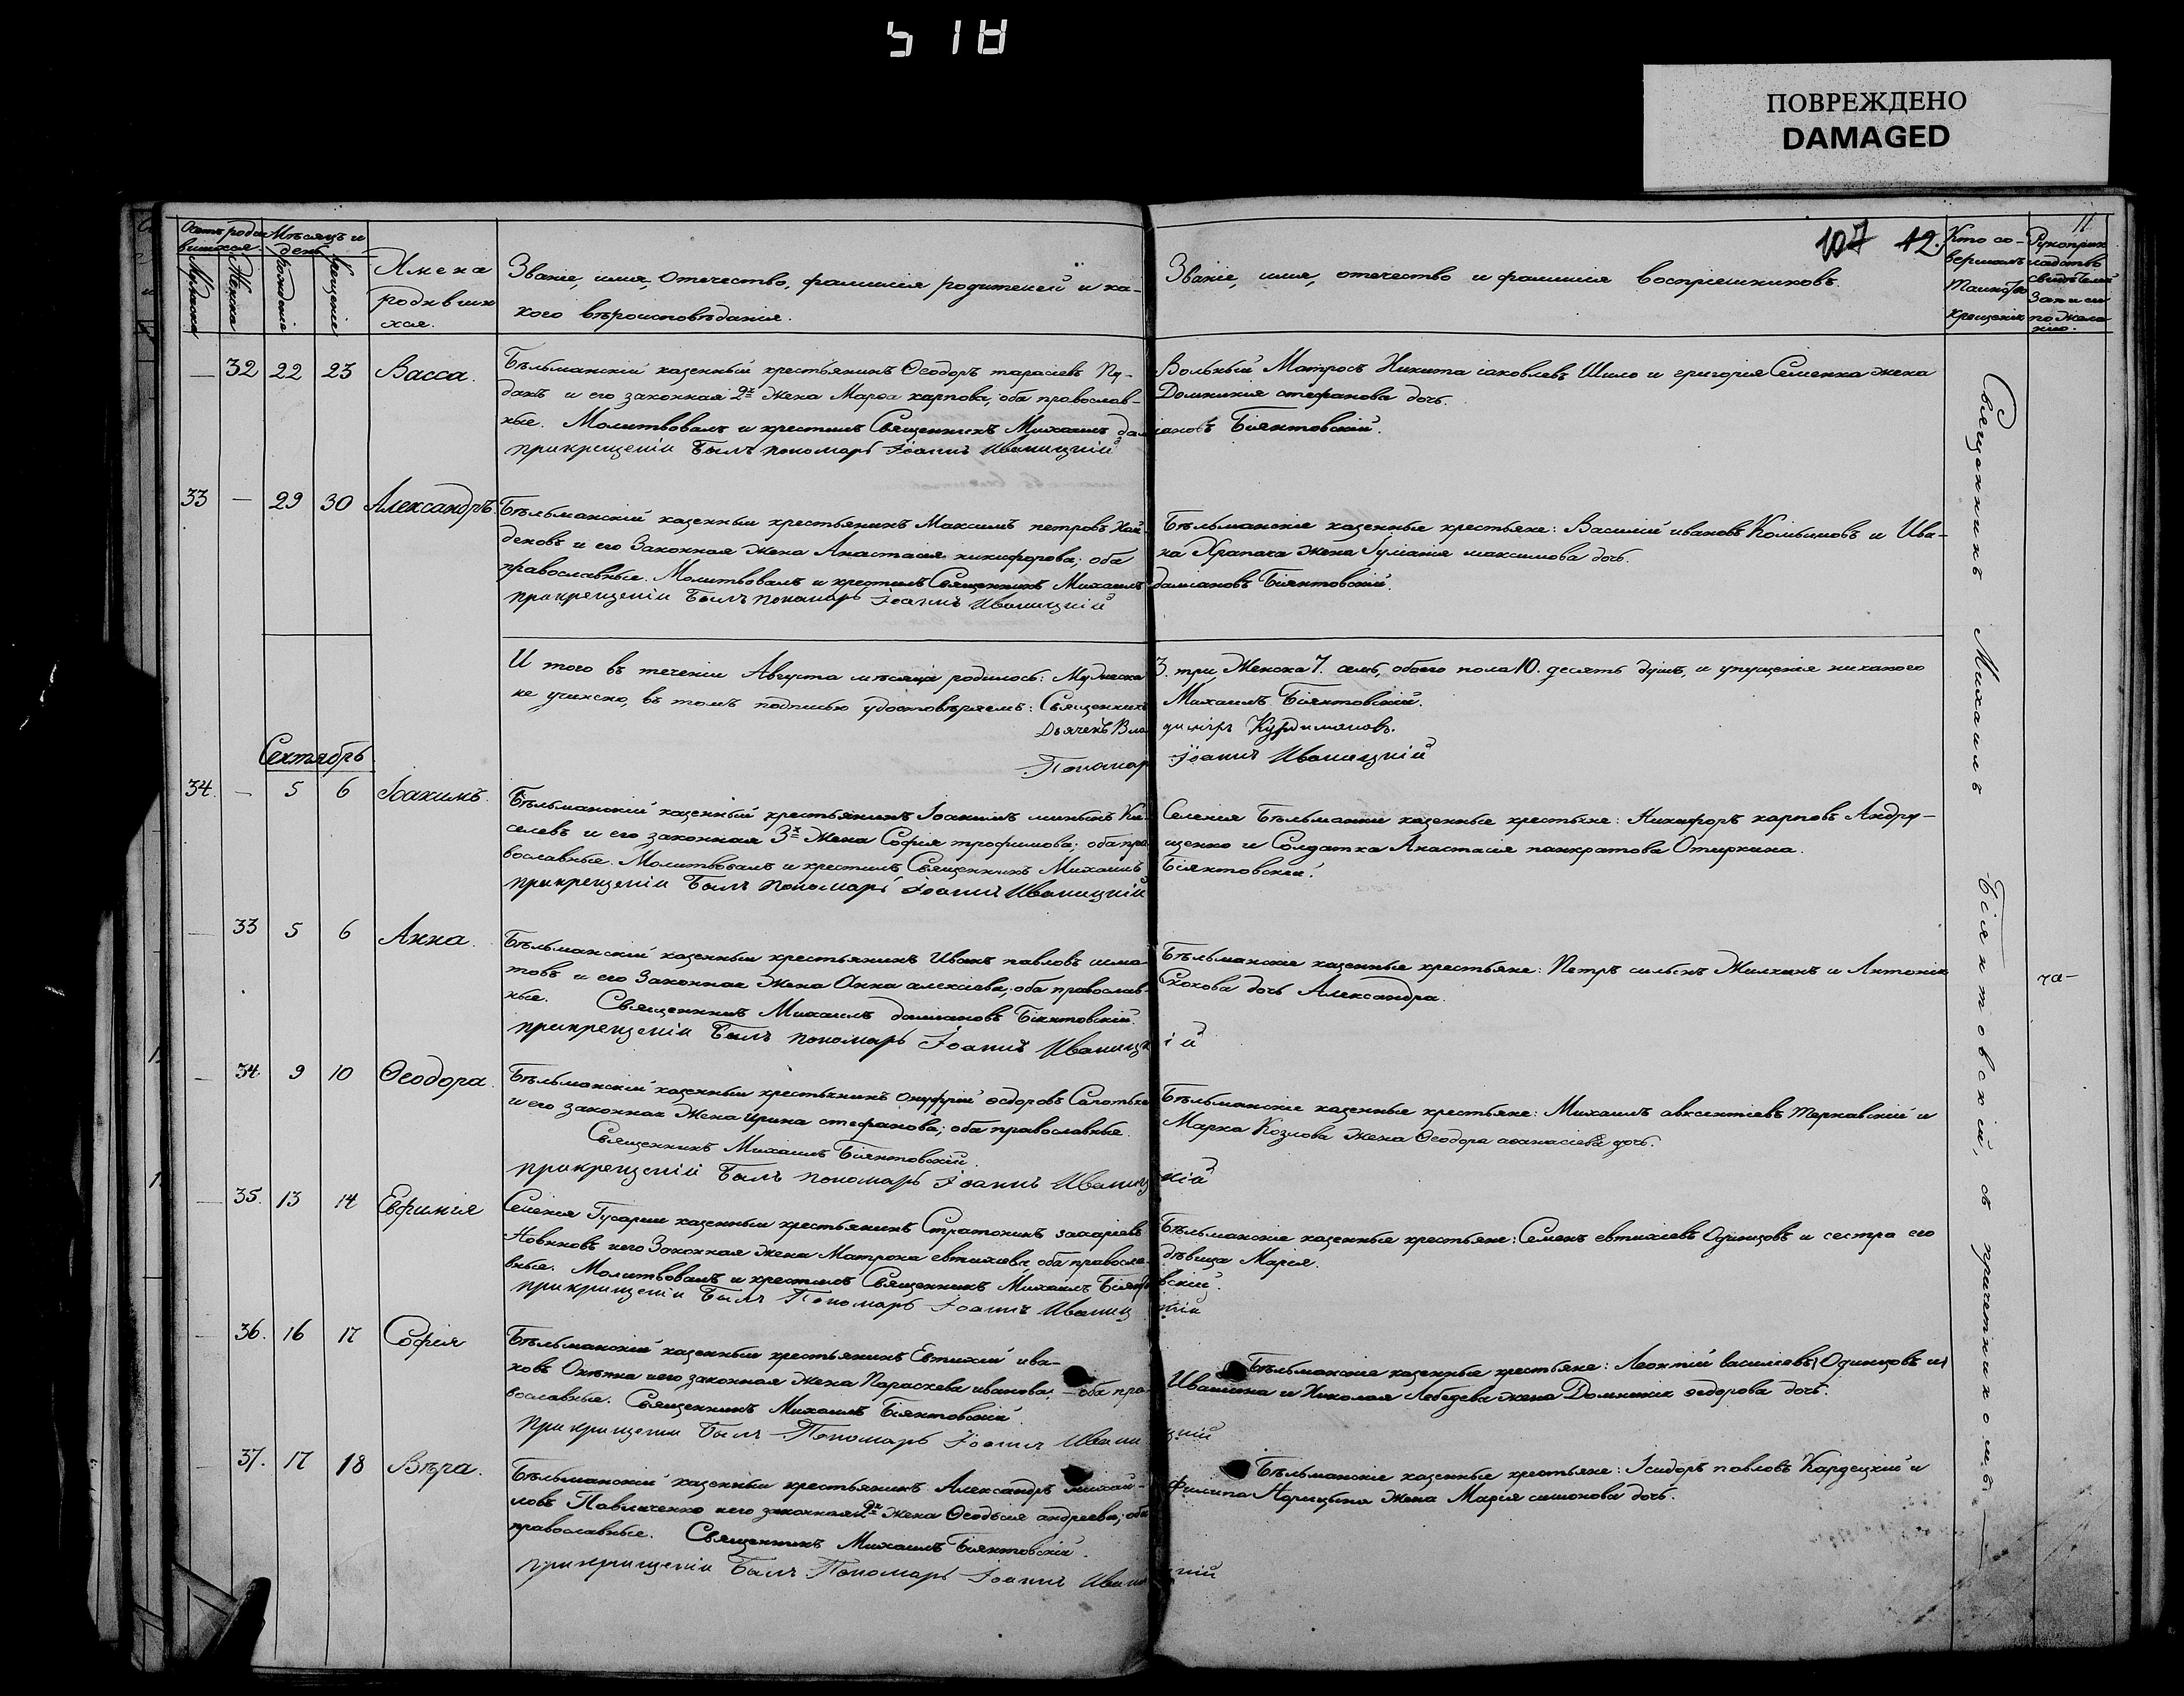 ПОВРЕЖДЕНО
DAMAGED
107 12.
11
Мѣсяцъ и день
Мужеска
Женска
рожденіе
крещеніе
Имена родившихся.
Званіе, имя, отечество, фамилія родителей и какого вѣроисповѣданія.
Званіе, имя, отечество и фамилія воспріемниковъ.
Кто совершалъ таинство крещенія
Рукоприкладство свидѣтелей записи по желанію.
— 32 22 23 Васса.
Бѣльманскій казенный крестьянинъ Ѳеодоръ тарасіевъ
и его законная 2я жена Марѳа карпова; оба православ-
ные. Молитвовалъ и крестилъ Священникъ Михаилъ даміановъ Біянтовскій.
при крещеніи былъ пономарь Іоаннъ Иваницкій
Вольный Матросъ Никита іаковлевъ Шило и григорія Семенка жена
Домникія стефанова дочь.
33 — 29 30 Александръ.
Бѣльманскій казенный крестьянинъ Максимъ петровъ Хай-
деновъ и его Законная жена Анастасія никифорова; оба
православные. Молитвовалъ и крестилъ Священникъ Михаилъ даміановъ Біянтовскій.
при крещеніи былъ пономарь Іоаннъ Иваницкій
Бѣльманскіе казенные крестьяне: Василій ивановъ и Ива-
на Храпача жена Іуліанія максимова дочь.
И того въ теченіи Августа мѣсяца родилось: Мужеска 3. три, Женска 7. семь, обоего пола 10. десять душъ, и упущенія никакого
не учинено, въ томъ подписью удостовѣряемъ: Священникъ Михаилъ Біянтовскій.
Дьячекъ Владиміръ Курдимановъ.
Пономарь Іоаннъ Иваницкій
Сентябрь
34. — 5 6 Іоакимъ.
Бѣльманскій казенный крестьянинъ Іоакимъ мининъ Ки-
селевъ и его законная 3я жена Софія трофимова; оба пра-
вославные. Молитвовалъ и крестилъ Священникъ Михаилъ Біянтовскій.
при крещеніи былъ пономарь Іоаннъ Иваницкій
Селенія Бѣльманки казенные крестьяне: Никифоръ карповъ Андру-
щенко и Солдатка Анастасія панкратова
— 33 5 6 Анна.
Бѣльманскій казенный крестьянинъ Иванъ павловъ
и его Законная жена Анна алексіева; оба православ-
ные. Священникъ Михаилъ даміановъ Біянтовскій.
при крещеніи былъ пономарь Іоаннъ Иваницкій
Бѣльманскіе казенные крестьяне: Петръ сильинъ Жилкинъ и Антонія
Скокова дочь Александра.
— 34. 9 10 Ѳеодора.
Бѣльманскій казенный крестьянинъ Онуфрій ѳедоровъ
и его законная жена Ирина стефанова; оба православные.
Священникъ Михаилъ Біянтовскій.
при крещеніи былъ пономарь Іоаннъ Иваницкій
Бѣльманскіе казенные крестьяне: Михаилъ авксентіевъ Тарнавскій и
Марка Козлова жена Ѳеодора аѳанасіева дочь.
— 35. 13 14 Евфимія
Селенія казенный крестьянинъ Стратоникъ захаріевъ
Новиковъ и его Законная жена Матрона евтихіева; оба правосла-
вные. Молитвовалъ и крестилъ Священникъ Михаилъ Біянтовскій.
при крещеніи былъ Пономарь Іоаннъ Иваницкій
Бѣльманскіе казенные крестьяне: Семенъ евтихіевъ Одинцовъ и сестра его
дѣвица Марія.
— 36. 16 17 Софія
Бѣльманскій казенный крестьянинъ Евтихій ива-
новъ и его законная жена Параскева иванова; — оба пра-
вославные. Священникъ Михаилъ Біянтовскій.
при крещеніи былъ Пономарь Іоаннъ Иваницкій
Бѣльманскіе казенные крестьяне: Леонтій василіевъ Одинцовъ и
и Николая Лебедева жена Домникія ѳедорова дочь.
— 37. 17 18 Вѣра.
Бѣльманскій казенный крестьянинъ Александръ михаи-
ловъ Павличенко и его законная 2я жена Ѳеодосія андреева; оба
православные. Священникъ Михаилъ Біянтовскій.
при крещеніи былъ Пономарь Іоаннъ Иваницкій
Бѣльманскіе казенные крестьяне: Исидоръ павловъ и
Филипа жена Марія симонова дочь.
Священникъ Михаилъ Біянтовскій, съ причетникомъ